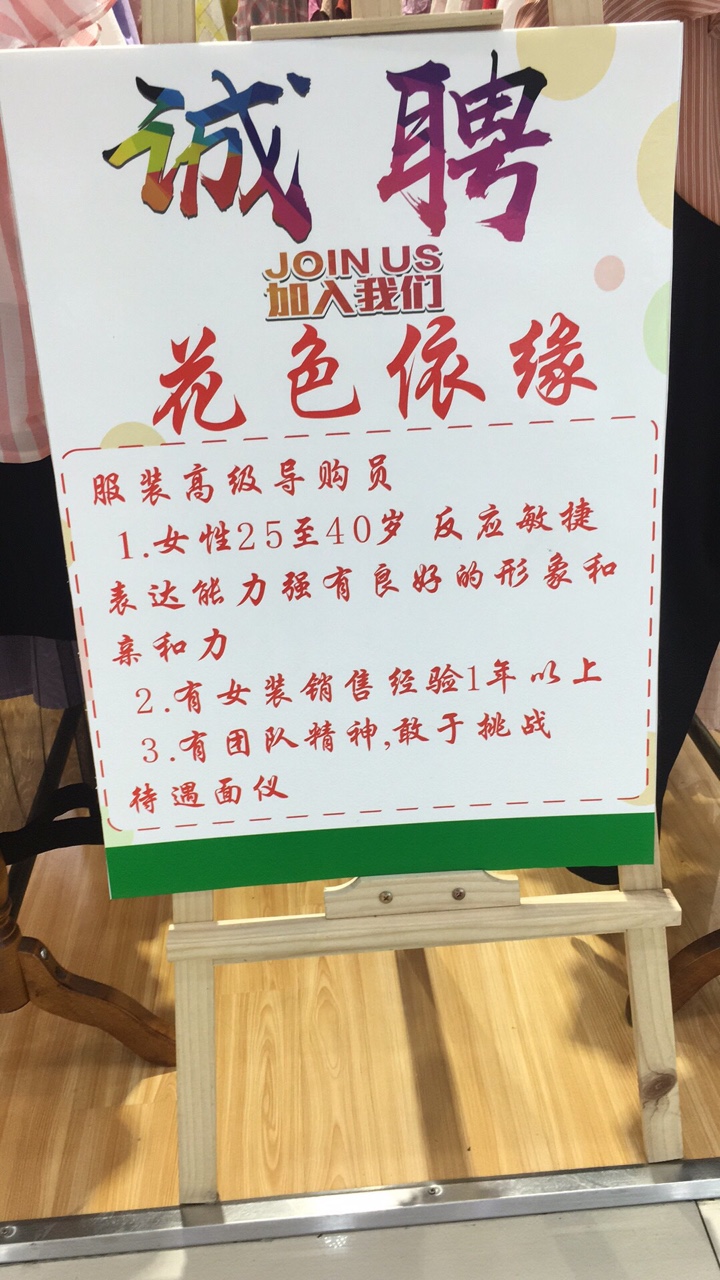 诚聘
JOIN US
加入我们
花色依缘
服装高级导购员
1.女性25至40岁 反应敏捷
表达能力强有良好的形象和
亲和力
2.有女装销售经验1年以上
3.有团队精神,敢于挑战
待遇面仪